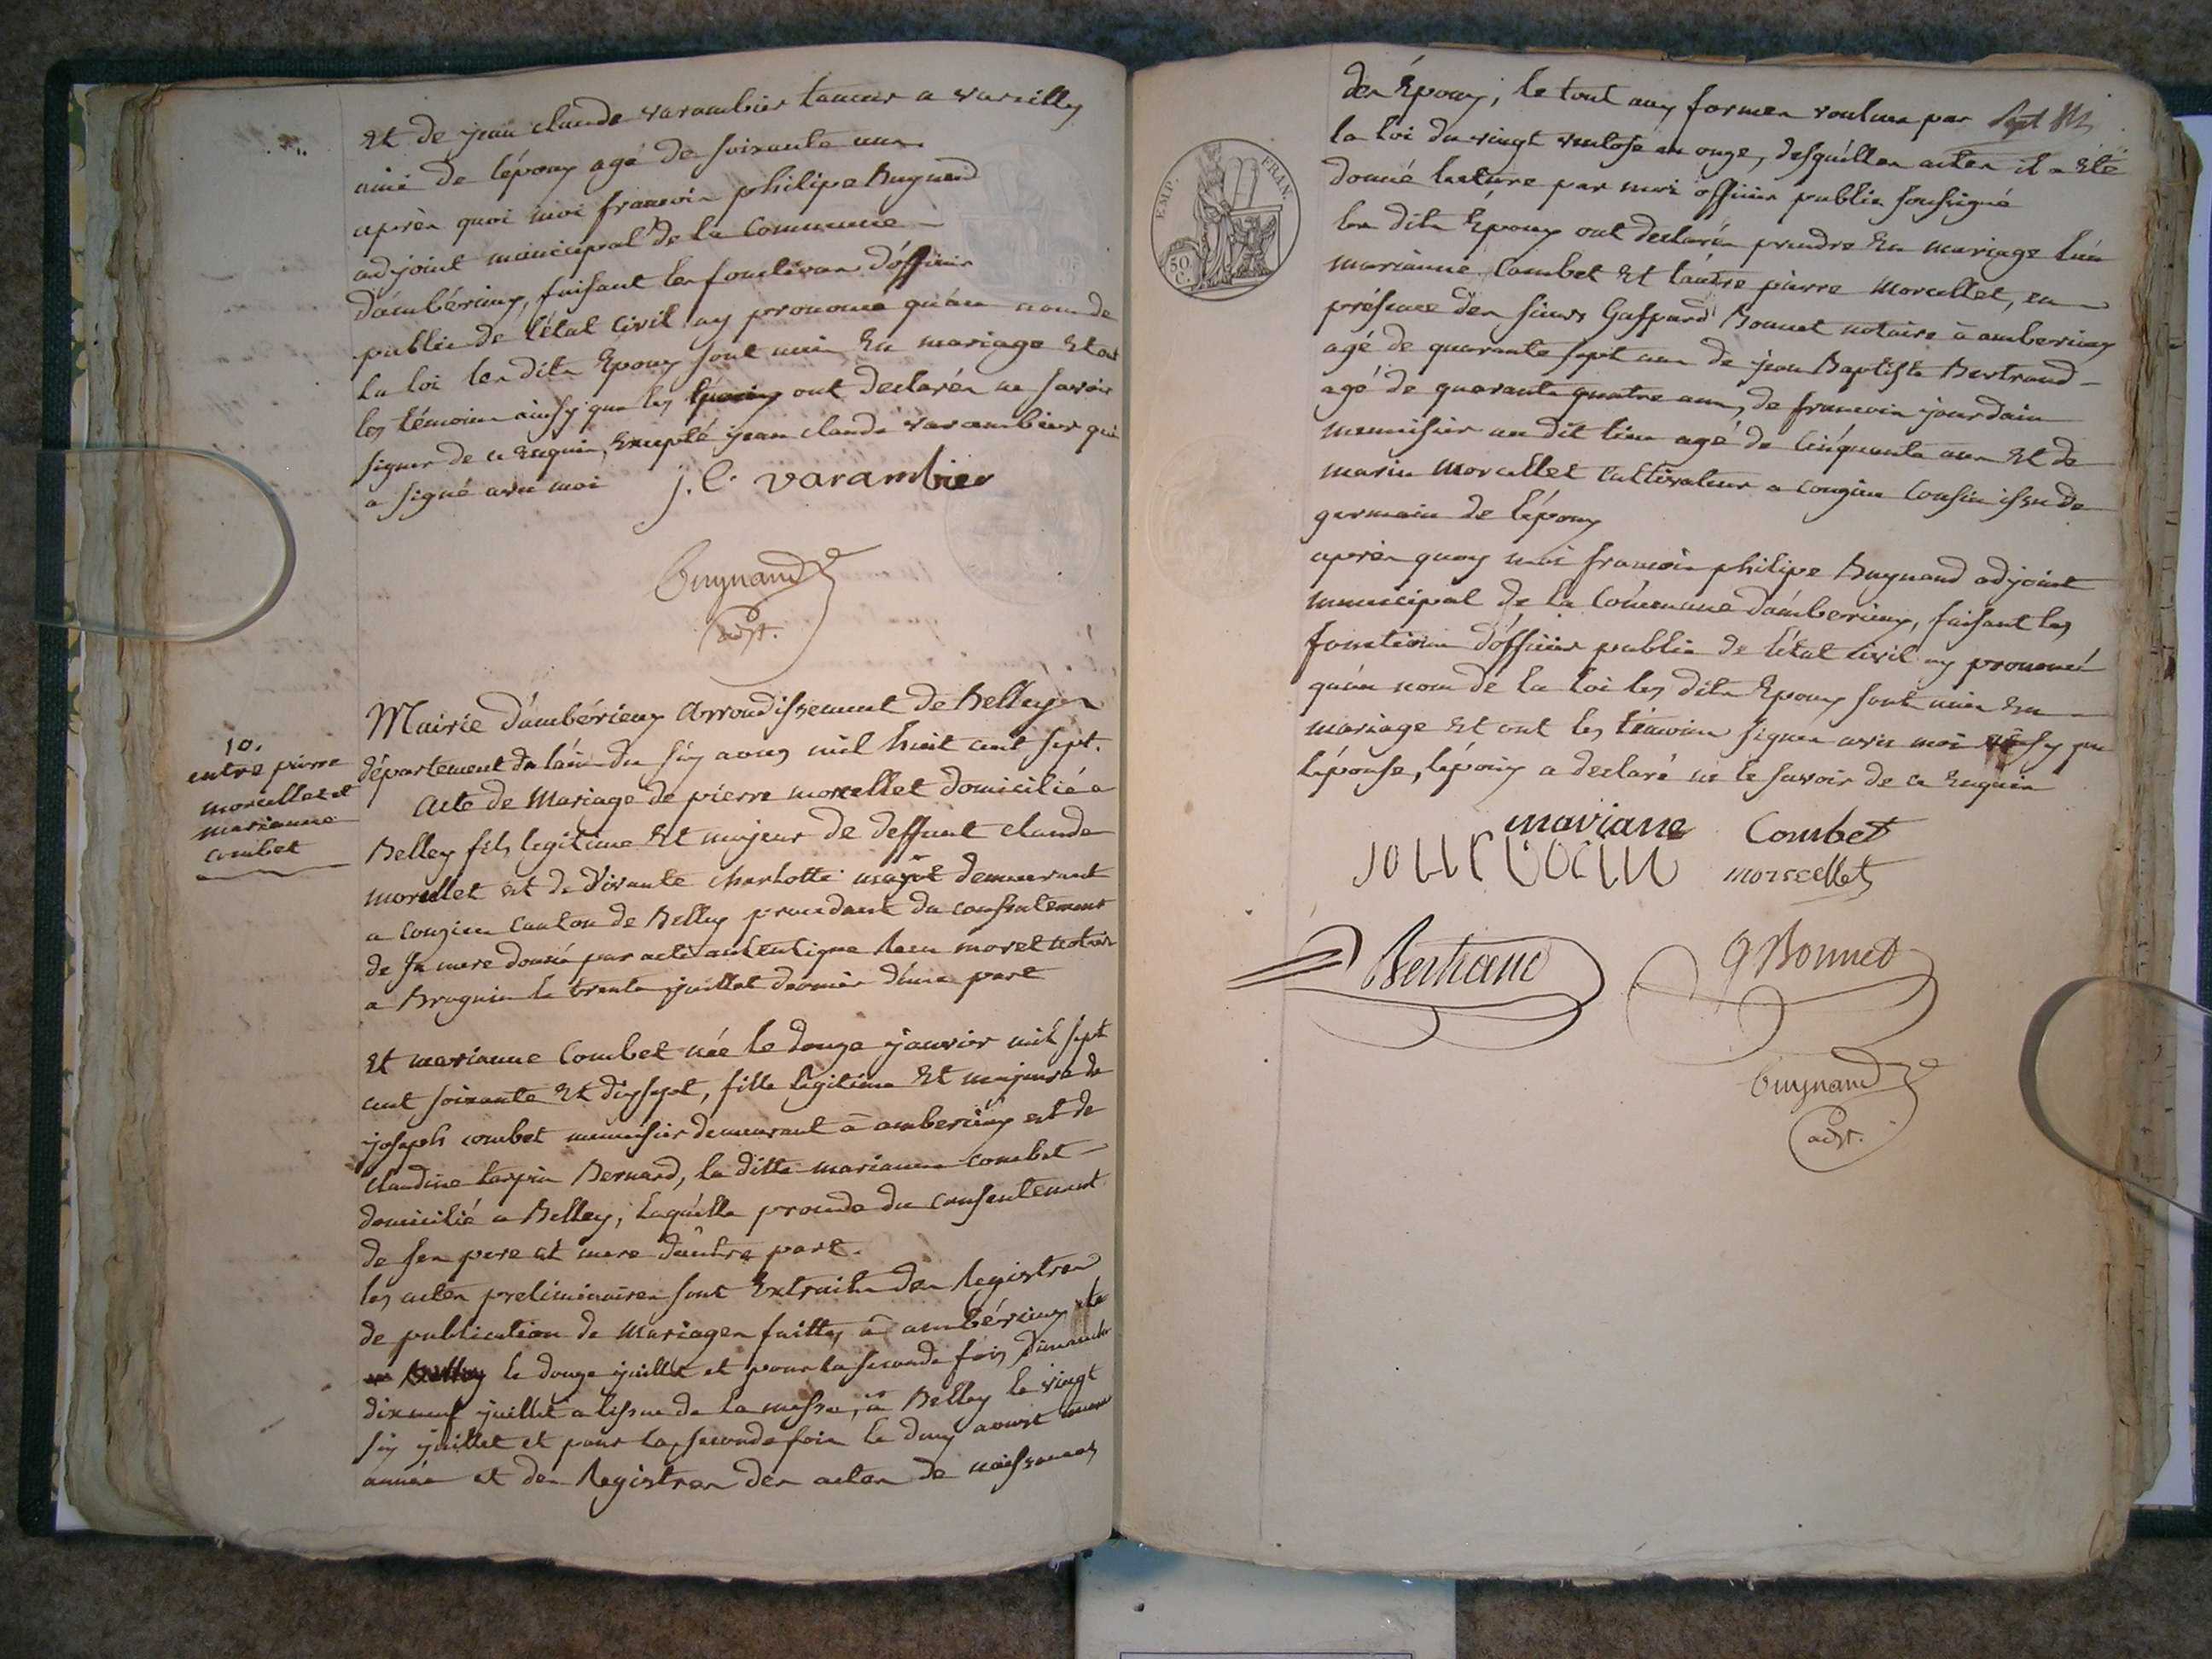 Et de jean claude varambier tanneur a vareilly
ami de l'époux agé de soixante ans
après quoi moi francois philipe Buynand
adjoint municipal de la Commune
d'ambérieux, faisant les fonctions d'officier
public de l'état civil ay prononcé qu'au nom de
la loi les dits Epoux sont unis En mariage Et ont
les témoins ainsy que les époux ont declarés ne savoir
signer de ce Enquis, Excepté jean claude varambier qui
a signé avec moi
j. C. varambier
Buynand
adjt.
10.
entre pierre
morcellet et
marianne
combet
Mairie d'ambérieux Arrondissement de Belley
département de l'ain du six aoust mil huit cent sept.
Acte de Mariage de pierre morcellet domicilié a
Belley fils legitime Et majeur de deffunt claude
morcellet et de vivante charlotte mayot demeurant
a Conzieu Canton de Belley procedant du consentement
de sa mere donné par acte autentique Reçu moret notaire
a Bregnier le trente juillet dernier d'une part
Et marianne Combet née le douze janvier mil sept
cent soixante Et dixsept, fille legitime Et majeure de
joseph combet menuisier demeurant à amberieux et de
claudine tarpin Bernard, la ditte marianne combet
domicilié a Belley, laquelle procede du consentement
de ses pere et mere d'autre part.
les actes preliminaires sont Extraits des Registres
de publication de Mariages faittes à ambérieux
le douze juillet et pour la seconde fois Dimanche
dixneuf juillet a l'issue de la messe, à Belley le vingt
six juillet et pour la seconde fois le deux aoust meme
année et des Registres des actes de naissances
des Epoux, le tout aux formes voulues par
Sept
EMP. FRAN.
50
C.
la loi du vingt ventose an onze, desquelles actes il a été
donné lecture par moi officier public soussigné
les dits Epoux ont declarés prendre En mariage l'un
marianne Combet Et l'autre pierre Morcellet, en
présence des sieurs Gaspard Bonnet notaire à amberieux
agé de quarante sept ans de jean Baptiste Bertrand
agé de quarante quatre ans, de francois jourdain
menuisier au dit lieu agé de cinquante ans Et de
marin Morcellet Cultivateur a conzieu Cousin issu de
germain de l'époux
après quoy moi francois philipe Buynand adjoint
municipal de la Commune d'amberieux, faisant les
fonctions d'officier public de l'état civil ay prononcé
qu'au nom de la loi les dits Epoux sont unis En
mariage Et ont les témoins signés avec moi ainsy que
l'épouse, l'époux a declaré ne le savoir de ce Enquis
mariane Combet
jourdain morcellet
Bertrand
G Bonnet
Buynand
adjt.